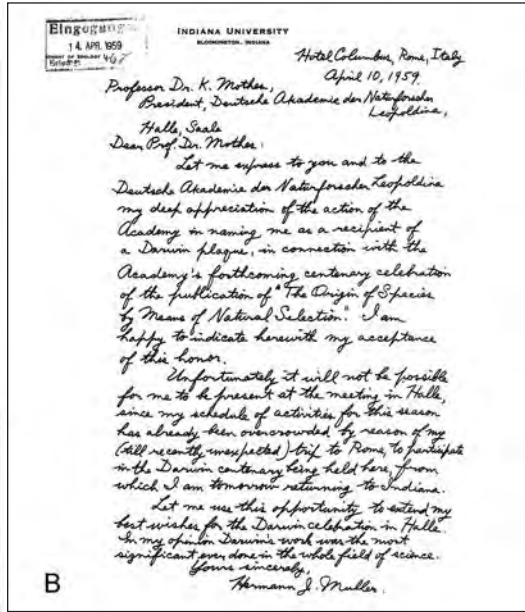 Eingegangen
14. APR. 1959
Erledigt:
INDIANA UNIVERSITY
BLOOMINGTON, INDIANA
Hotel Columbus, Rome, Italy
April 10, 1959.
Professor Dr. K. Mothes,
President, Deutsche Akademie der Naturforscher
Leopoldina,
Halle, Saale
Dear Prof. Dr. Mothes:
Let me express to you and to the
Deutsche Akademie der Naturforscher Leopoldina
my deep appreciation of the action of the
Academy in naming me as a recipient of
a Darwin plaque, in connection with the
Academy's forthcoming centenary celebration
of the publication of "The Origin of Species
by Means of Natural Selection." I am
happy to indicate herewith my acceptance
of this honor.
Unfortunately it will not be possible
for me to be present at the meeting in Halle,
since my schedule of activities for this season
has already been overcrowded by reason of my
(till recently unexpected) trip to Rome, to participate
in the Darwin centenary being held here, from
which I am tomorrow returning to Indiana.
Let me use this opportunity to extend my
best wishes for the Darwin celebration in Halle.
In my opinion Darwin's work was the most
significant ever done in the whole field of science.
Yours sincerely,
Hermann J. Muller.
B